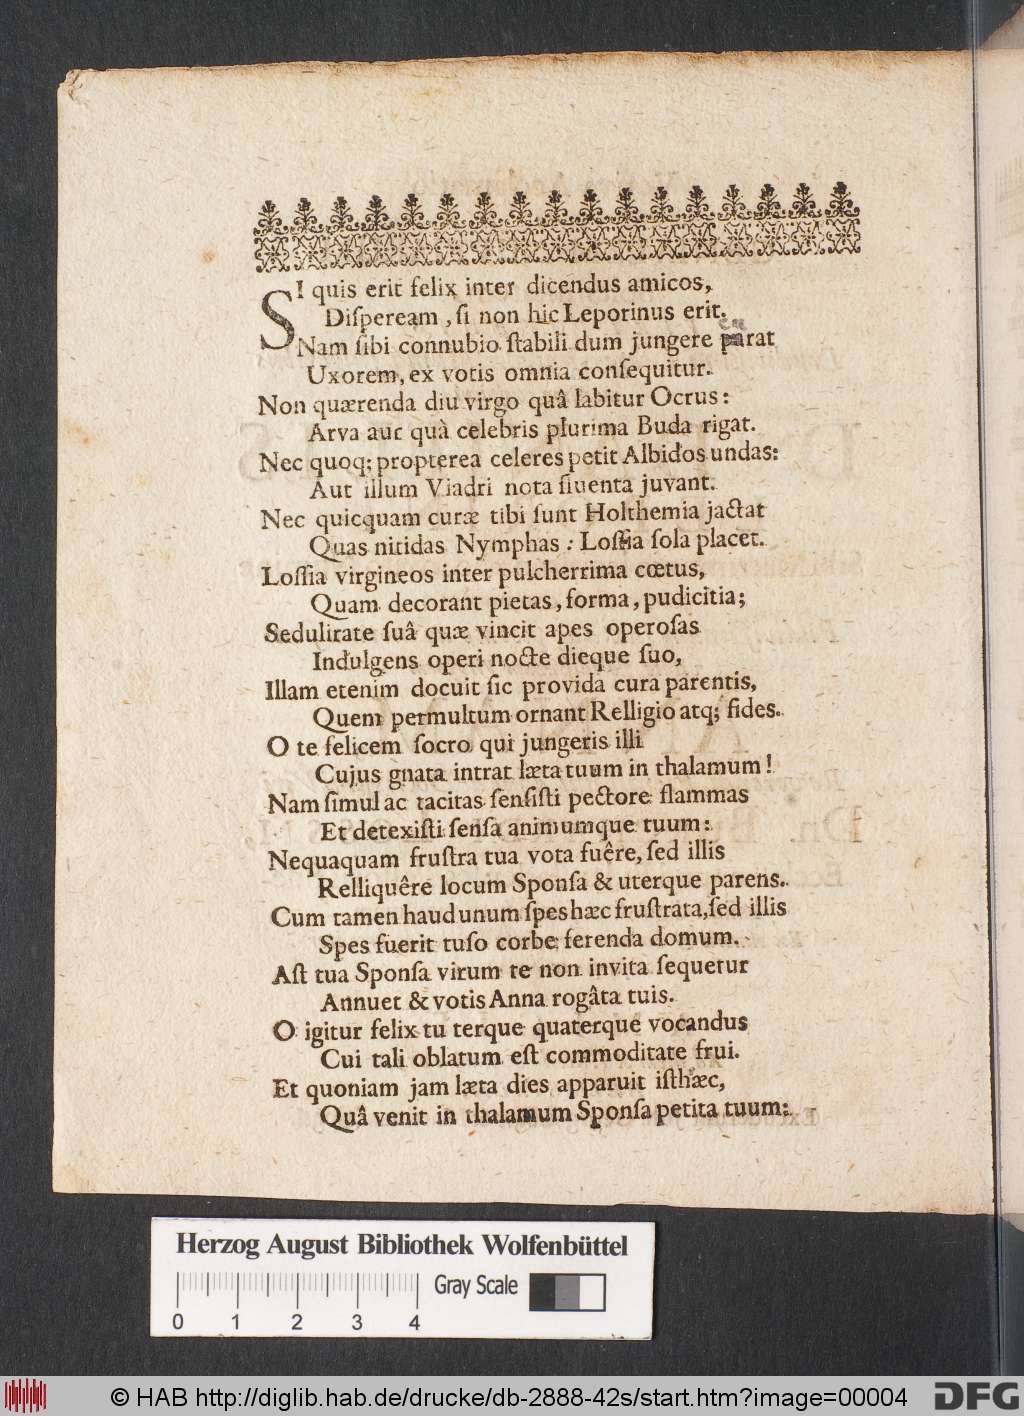 SI quis erit felix inter dicendus amicos,
Diſpeream, ſi non hic Leporinus erit.
Nam ſibi connubio ſtabili dum jungere parat
Uxorem, ex votis omnia conſequitur.
Non quærenda diu virgo quâ labitur Ocrus:
Arva aut quà celebris plurima Buda rigat.
Nec quoq; propterea celeres petit Albidos undas:
Aut illum Viadri nota fluenta juvant.
Nec quicquam curæ tibi ſunt Holthemia jactat
Quas nitidas Nymphas: Loſſia ſola placet.
Loſſia virgineos inter pulcherrima cœtus,
Quam decorant pietas, forma, pudicitia;
Sedulitate ſuâ quæ vincit apes operoſas
Indulgens operi nocte dieque ſuo,
Illam etenim docuit ſic provida cura parentis,
Quem permultum ornant Relligio atq; fides.
O te felicem ſocro qui jungeris illi
Cujus gnata intrat læta tuum in thalamum!
Nam ſimul ac tacitas ſenſiſti pectore flammas
Et detexiſti ſenſa animumque tuum:
Nequaquam fruſtra tua vota fuêre, ſed illis
Relliquêre locum Sponſa & uterque parens.
Cum tamen haud unum ſpes hæc fruſtrata, ſed illis
Spes fuerit tuſo corbe ferenda domum.
Aſt tua Sponſa virum te non invita ſequetur
Annuet & votis Anna rogâta tuis.
O igitur felix tu terque quaterque vocandus
Cui tali oblatum eſt commoditate frui.
Et quoniam jam læta dies apparuit iſthæc,
Quâ venit in thalamum Sponſa petita tuum:
Herzog August Bibliothek Wolfenbüttel
Gray Scale
0 1 2 3 4
© HAB http://diglib.hab.de/drucke/db-2888-42s/start.htm?image=00004
DFG